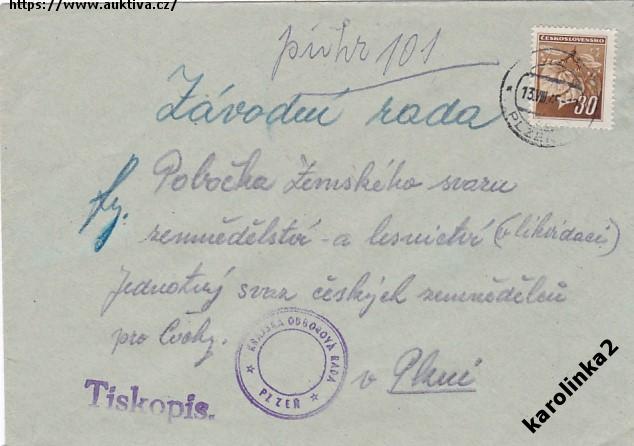 https://www.auktiva.cz/
ČESKOSLOVENSKO
80
13.VIII
PLZEŇ
101
Závodní rada
fy.
Pobočka Zemského svazu
zemědělství a lesnictví (v likvidaci)
Jednotný svaz českých zemědělců
pro Čechy.
KRAJSKÁ ODBOROVÁ RADA
PLZEŇ
v Plzni
Tiskopis.
karolinka2